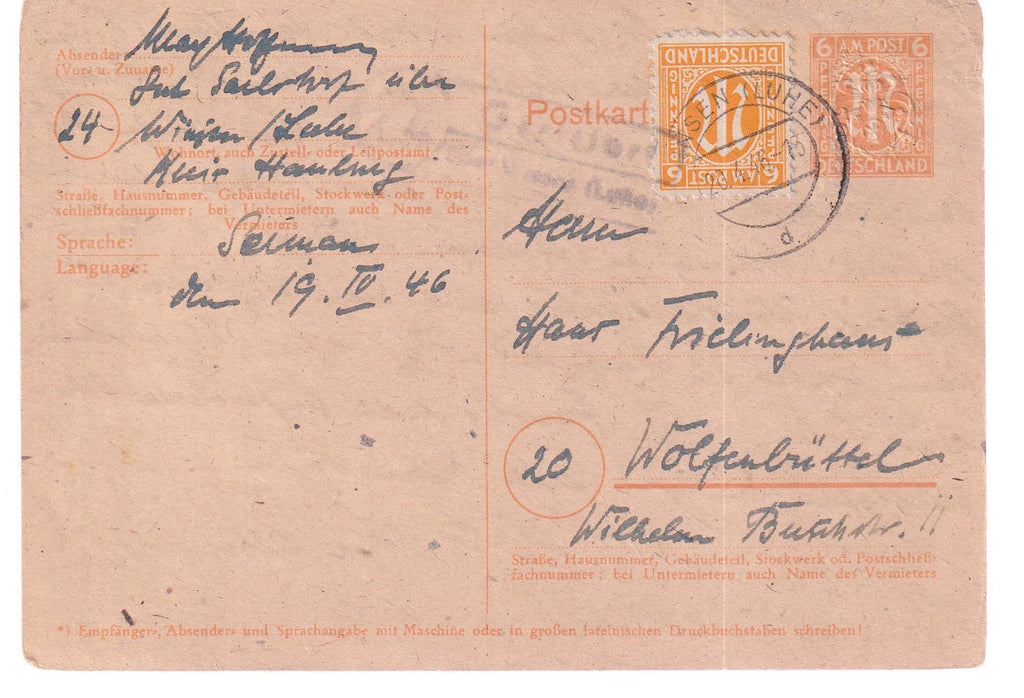 Absender:
(Vor- u. Zuname)
Gut
über
24
Winsen / Luhe
Wohnort, auch Zustell- oder Leitpostamt
Harburg
Straße, Hausnummer, Gebäudeteil, Stockwerk oder Post-
schließfachnummer; bei Untermietern auch Name des
Vermieters
Sprache:
Language:
German
den 19. IV. 46
Postkart
DEUTSCHLAND
PFENNIG
AM POST
6
6 AM POST 6
DEUTSCHLAND
SEN (LUHE)
d
Herrn
Hans Frielinghaus
20 Wolfenbüttel
Wilhelm Buschstr. 11
Straße, Hausnummer, Gebäudeteil, Stockwerk od. Postschließ-
fachnummer; bei Untermietern auch Name des Vermieters
*) Empfänger-, Absender- und Sprachangabe mit Maschine oder in großen lateinischen Druckbuchstaben schreiben!